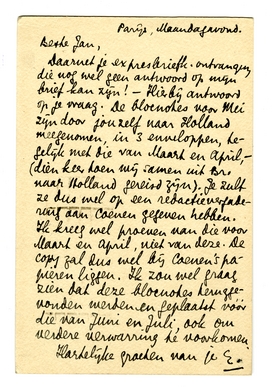 Parijs, Maandagavond.
Beste Jan,
Daarnet je expresbriefk. ontvangen,
die nog wel geen antwoord op mijn
brief kan zijn! — Hierbij antwoord
op je vraag. De blocnotes voor Mei
zijn door jou zelf naar Holland
meegenomen, in 3 enveloppen, te-
gelijk met die van Maart en April, —
(dien keer toen wij samen uit Br.
naar Holland gereisd zijn). Je zult
ze dus wel op een redactievergade-
ring aan Coenen gegeven hebben.
Ik kreeg wel proeven van die voor
Maart en April, niet van deze. De
copy zal dus wel bij Coenen's pa-
pieren liggen. Ik zou wel graag
zien dat deze blocnotes terugge-
vonden werden en geplaatst vóór
die van Juni en Juli, ook om
verdere verwarring te voorkomen.
Hartelijke groeten van je E.